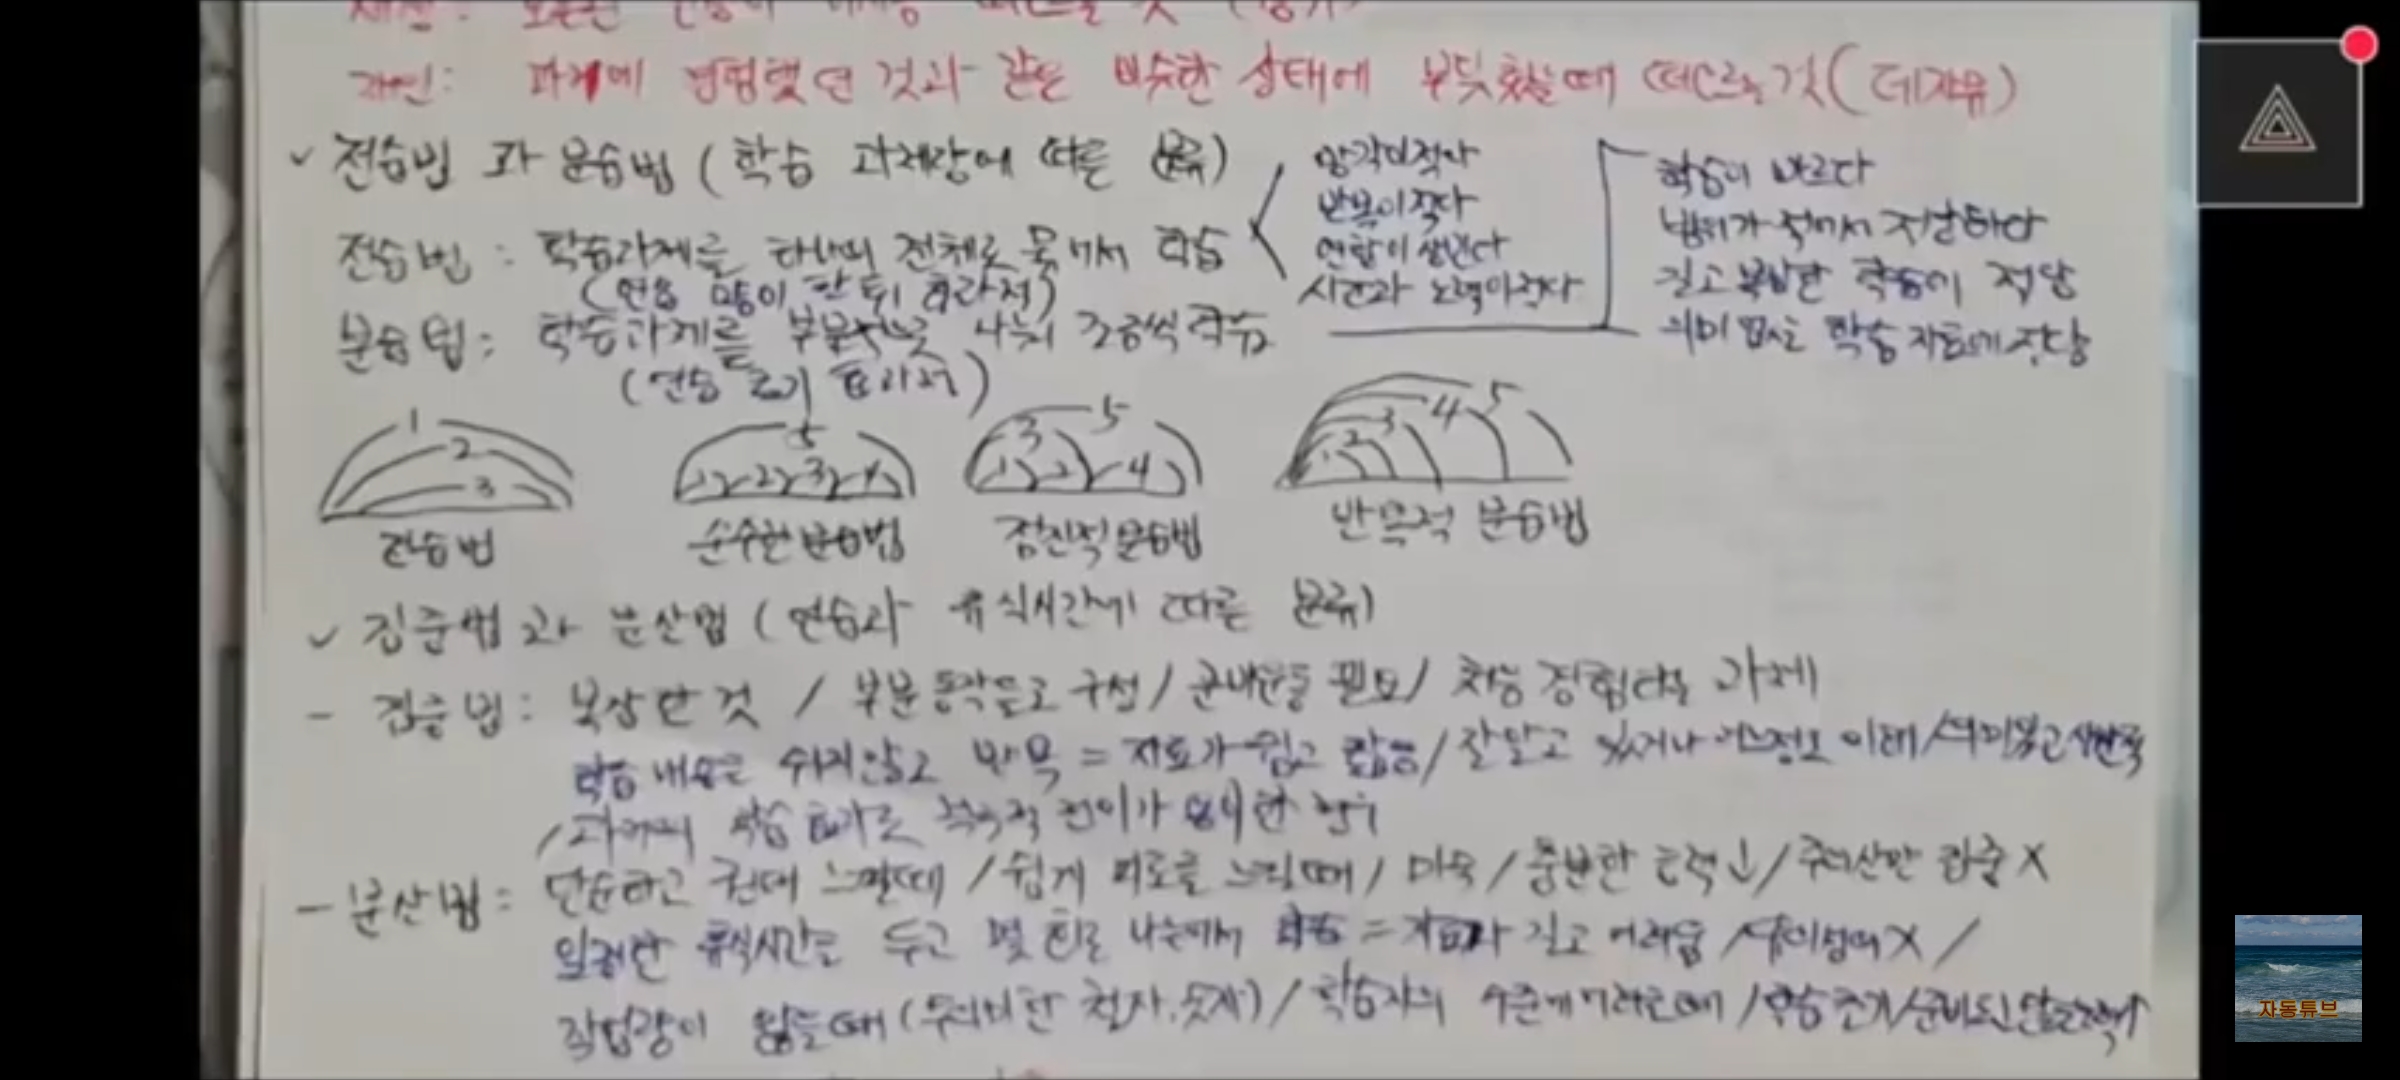 재인: 과거에 경험했던 것과 같은 비슷한 상태에 부딪혔을때 떠오르는것(데자뷰)
✓ 전습법 과 분습법 (학습 과제량에 따른 분류)
전습법 : 학습과제를 하나의 전체로 묶어서 학습
망각이적다
반복이적다
연합이생긴다
시간과 노력이적다
(연습 많이 한 뒤 효과적)
분습법 : 학습과제를 부분적으로 나눠서 조금씩학습
(연습 초기 효과적)
학습이 빠르다
범위가 적어서 적당하다
길고 복잡한 학습에 적당
의미 없는 학습 자료에 적당
1 2 3
전습법
1 2 3 4 5
순수한분습법
1 2 3 4 5
점진적분습법
1 2 3 4 5
반복적 분습법
✓ 집중법 과 분산법 (연습과 휴식시간에 따른 분류)
- 집중법 : 복잡한 것 / 부분 동작들로 구성 / 준비운동 필요 / 처음 경험하는 과제
학습 내용을 쉬지않고 반복 = 지도가 쉽고 / 잘알고 있거나 어느정도 이해 /
/ 과거의 학습 효과로 적극적 전이가 경우
- 분산법 : 단순하고 권태 느낄때 / 쉽게 피로를 느낄때 / 미숙 / 충분한 노력↓ / 주의산만 집중 X
일정한 휴식시간을 두고 몇 회로 나눠서 학습 = 지도가 길고 어려움 /
작업량이 많을때 (무의미한 철자, 숫자) / 학습자의 수준에 / 학습초기 /
자동튜브